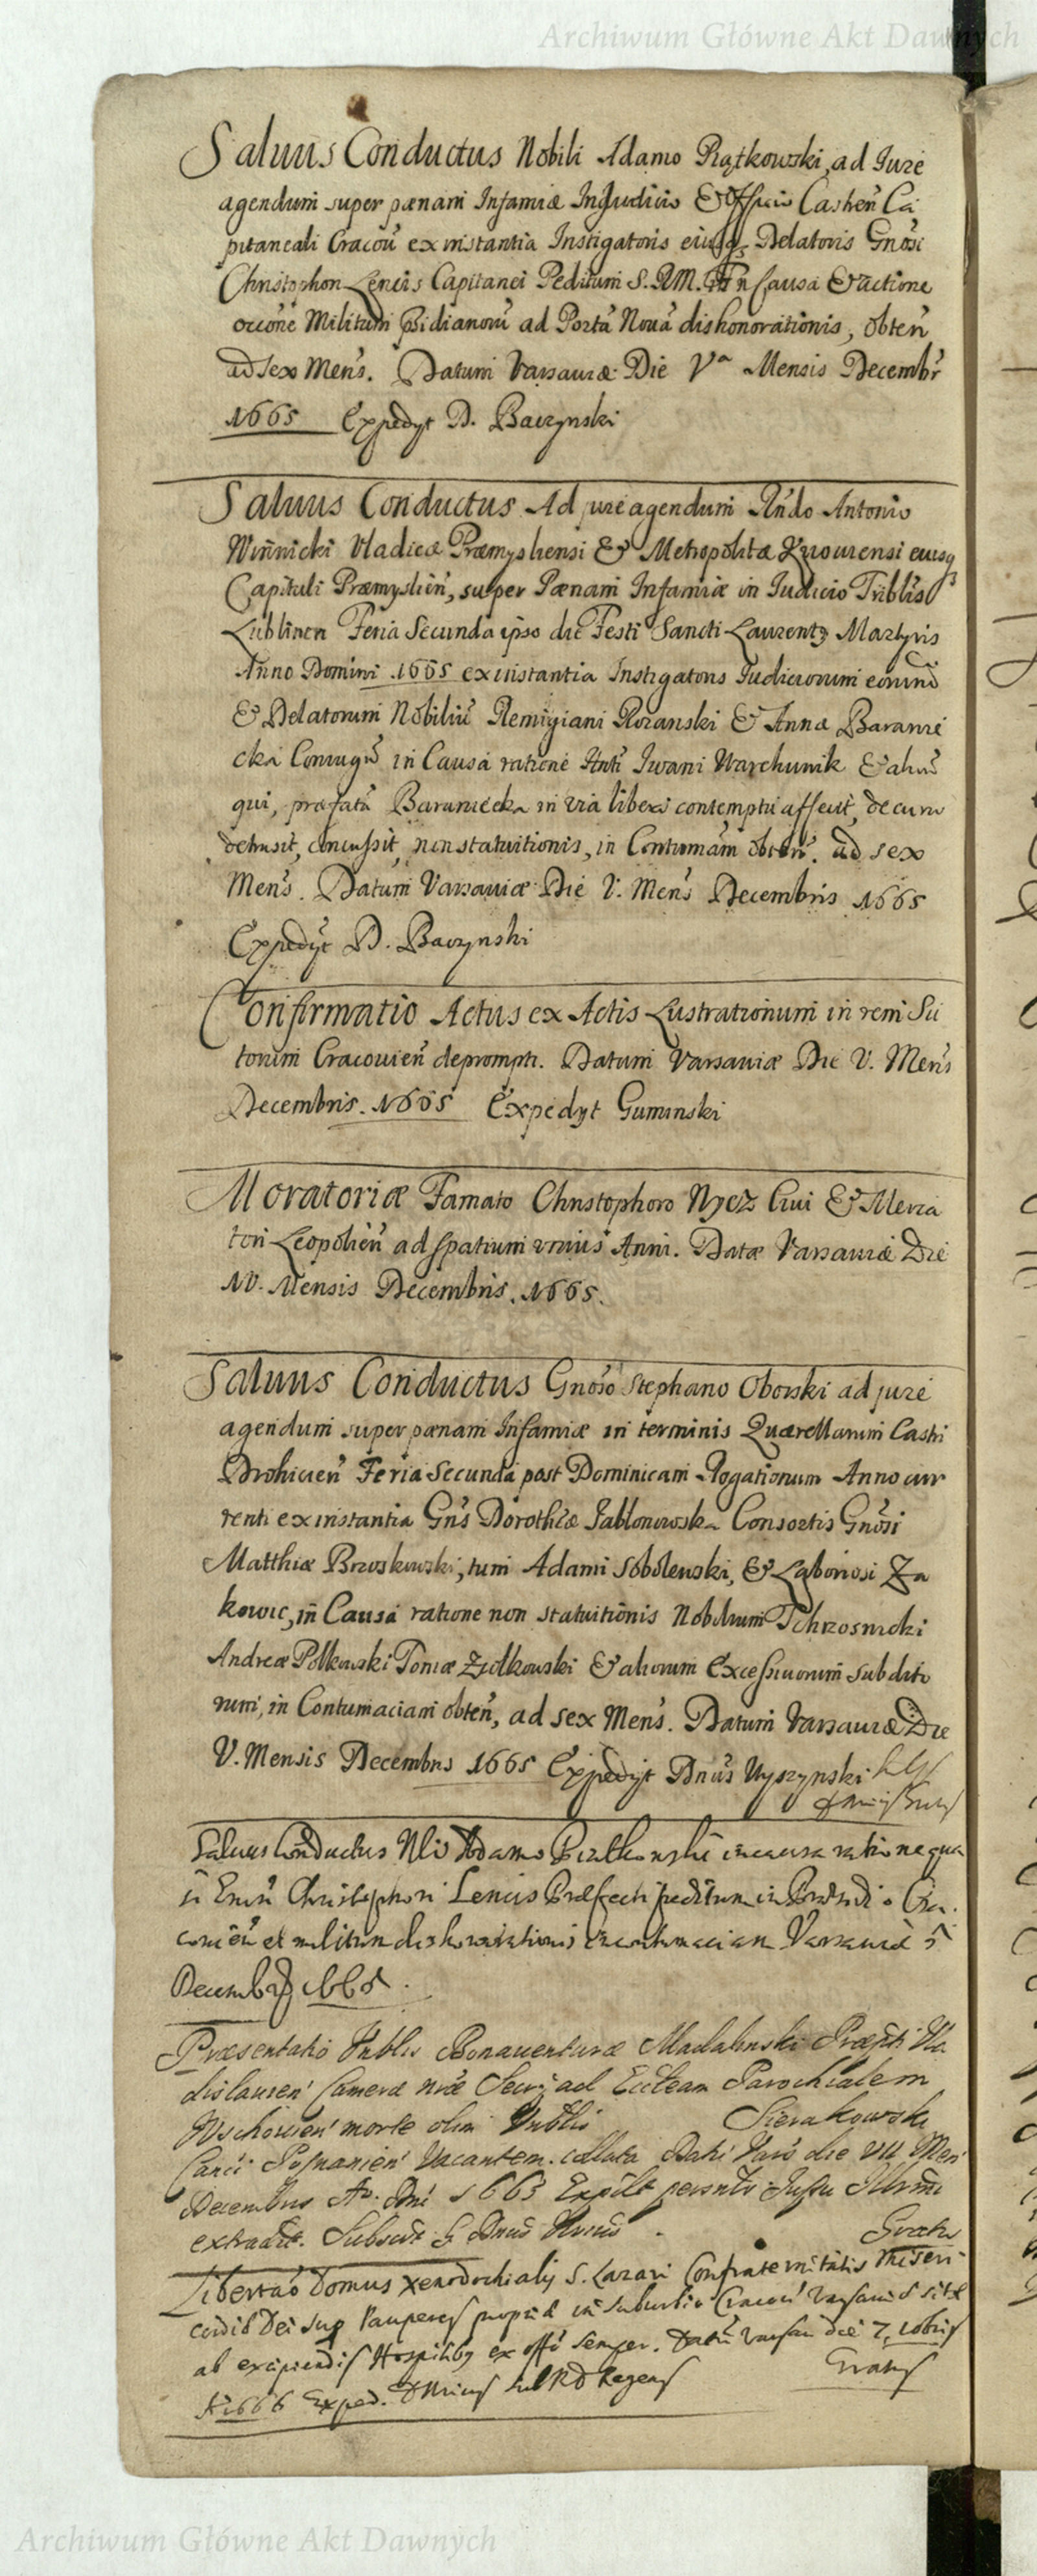 Archiwum Główne Akt Dawnych
Saluus Conductus Nobili Adamo Piątkowski, ad Iure
agendum super pænam Infamiæ In Judicio & Officio Castren̄ Ca
pitaneali Cracou̅ ex instantia Instigatoris eiusq Delatoris Gn̅osi
Christophori Lencis Capitanei Peditum S.R.M. In Causa & actione
occ̅one Militum Pidianoru̅ ad Porta̅ Noua̅ dishonorationis, obten̄
ad sex Mens̄. Datum Varsauiæ Die Vᵃ Mensis Decembr̄
1665 Expedyt D. Baczynski
Saluus Conductus Ad jure agendum Rn̄do Antonio
Winnicki Vladicæ Præmysliensi & Metropolitæ Kyouiensi eiusq
Capituli Præmyslien̄, super Pænam Infamiæ in Iudicio Tribl̄is
Lublinen Feria Secunda ipso die Festi Sancti Laurentÿ Martyris
Anno Domini 1665 ex instantia Instigatoris Iudiciorum eorund̄
& Delatorum Nobiliu̅ Remigiani Rozanski & Anna Baranie
cka Coniugu̅ in Causa ratione Iwani Warchunik & aliu̅
qui, præfata̅ Baraniecka in via libera contemptu affecit, de curru
detrusit, concussit, non statuitionis, in Contumam̄ obten̄. ad sex
Mens̄. Datum Varsauiæ Die V. Mens̄ Decembris 1665
Expedÿt D. Baczynski
Confirmatio Actus ex Actis Lustrationum in rem Su
torum Cracouien̄ deprompti. Datum Varsauiæ Die V. Mens̄
Decembris. 1665 Expedyt Guminski
Moratoriæ Famato Christophoro Nycz Ciui & Merca
tori Leopolien̄ ad spatium vnius Anni. Datæ Varsauiæ Die
IV. Mensis Decembris. 1665.
Saluus Conductus Gn̅oso Stephano Oborski ad jure
agendum super pænam Infamiæ in terminis Quærellarum Castri
Drohicien̄ Feria Secunda post Dominicam Rogationum Anno cur
renti ex instantia Gn̄s Dorothæ Iablonowska Consortis Gn̅osi
Matthiæ Brzoskowski, tum Adami Sobolewski, & Laboriosi Za
kowic, in Causa ratione non statuitionis Nobilium Tchrzosnicki
Andreæ Polkowski Tomæ Ziolkowski & aliorum Excessiuorum subdito
rum, in Contumaciam obten̄, ad sex Mens̄. Datum Varsauiæ Die
V. Mensis Decembris 1665 Expedijt Dn̄us Wyszynski
Saluus Conductus Nli Adamo Piatkowski in causa ratione qua
Christophori Lencis Præfecti peditum in Præsidio Cra
couien̄ et militum dishonorationis in contumaciam Varsauiæ 5
Decembr 1665.
Præsentatio Vnblis Bonauenturæ Madalinski Præpti Vla
dislauien̄ Cameræ nræ Secrÿ ad Eccleam Parochialem
Wschouien̄ morte olim Vnblis Sierakowski
Canci Posnanien̄ Vacantem collata Dati Vars̄ die VII Men̄
Decembris Ao. Dni 1665 Jussu Illrmi
extradit. Subscr Dnus Gratis
Libertaō Domus Xenodochialis S. Lazari Confraternitatis Miseri
cordiæ Dei sup Pauperes in suburbio Cracou̅ sitæ
ab excipiendis Hospitibq ex offō semper. Dat̄ Varsau die 7 Xbris
Ao 1666 Exped. Regens Gratis
Archiwum Główne Akt Dawnych